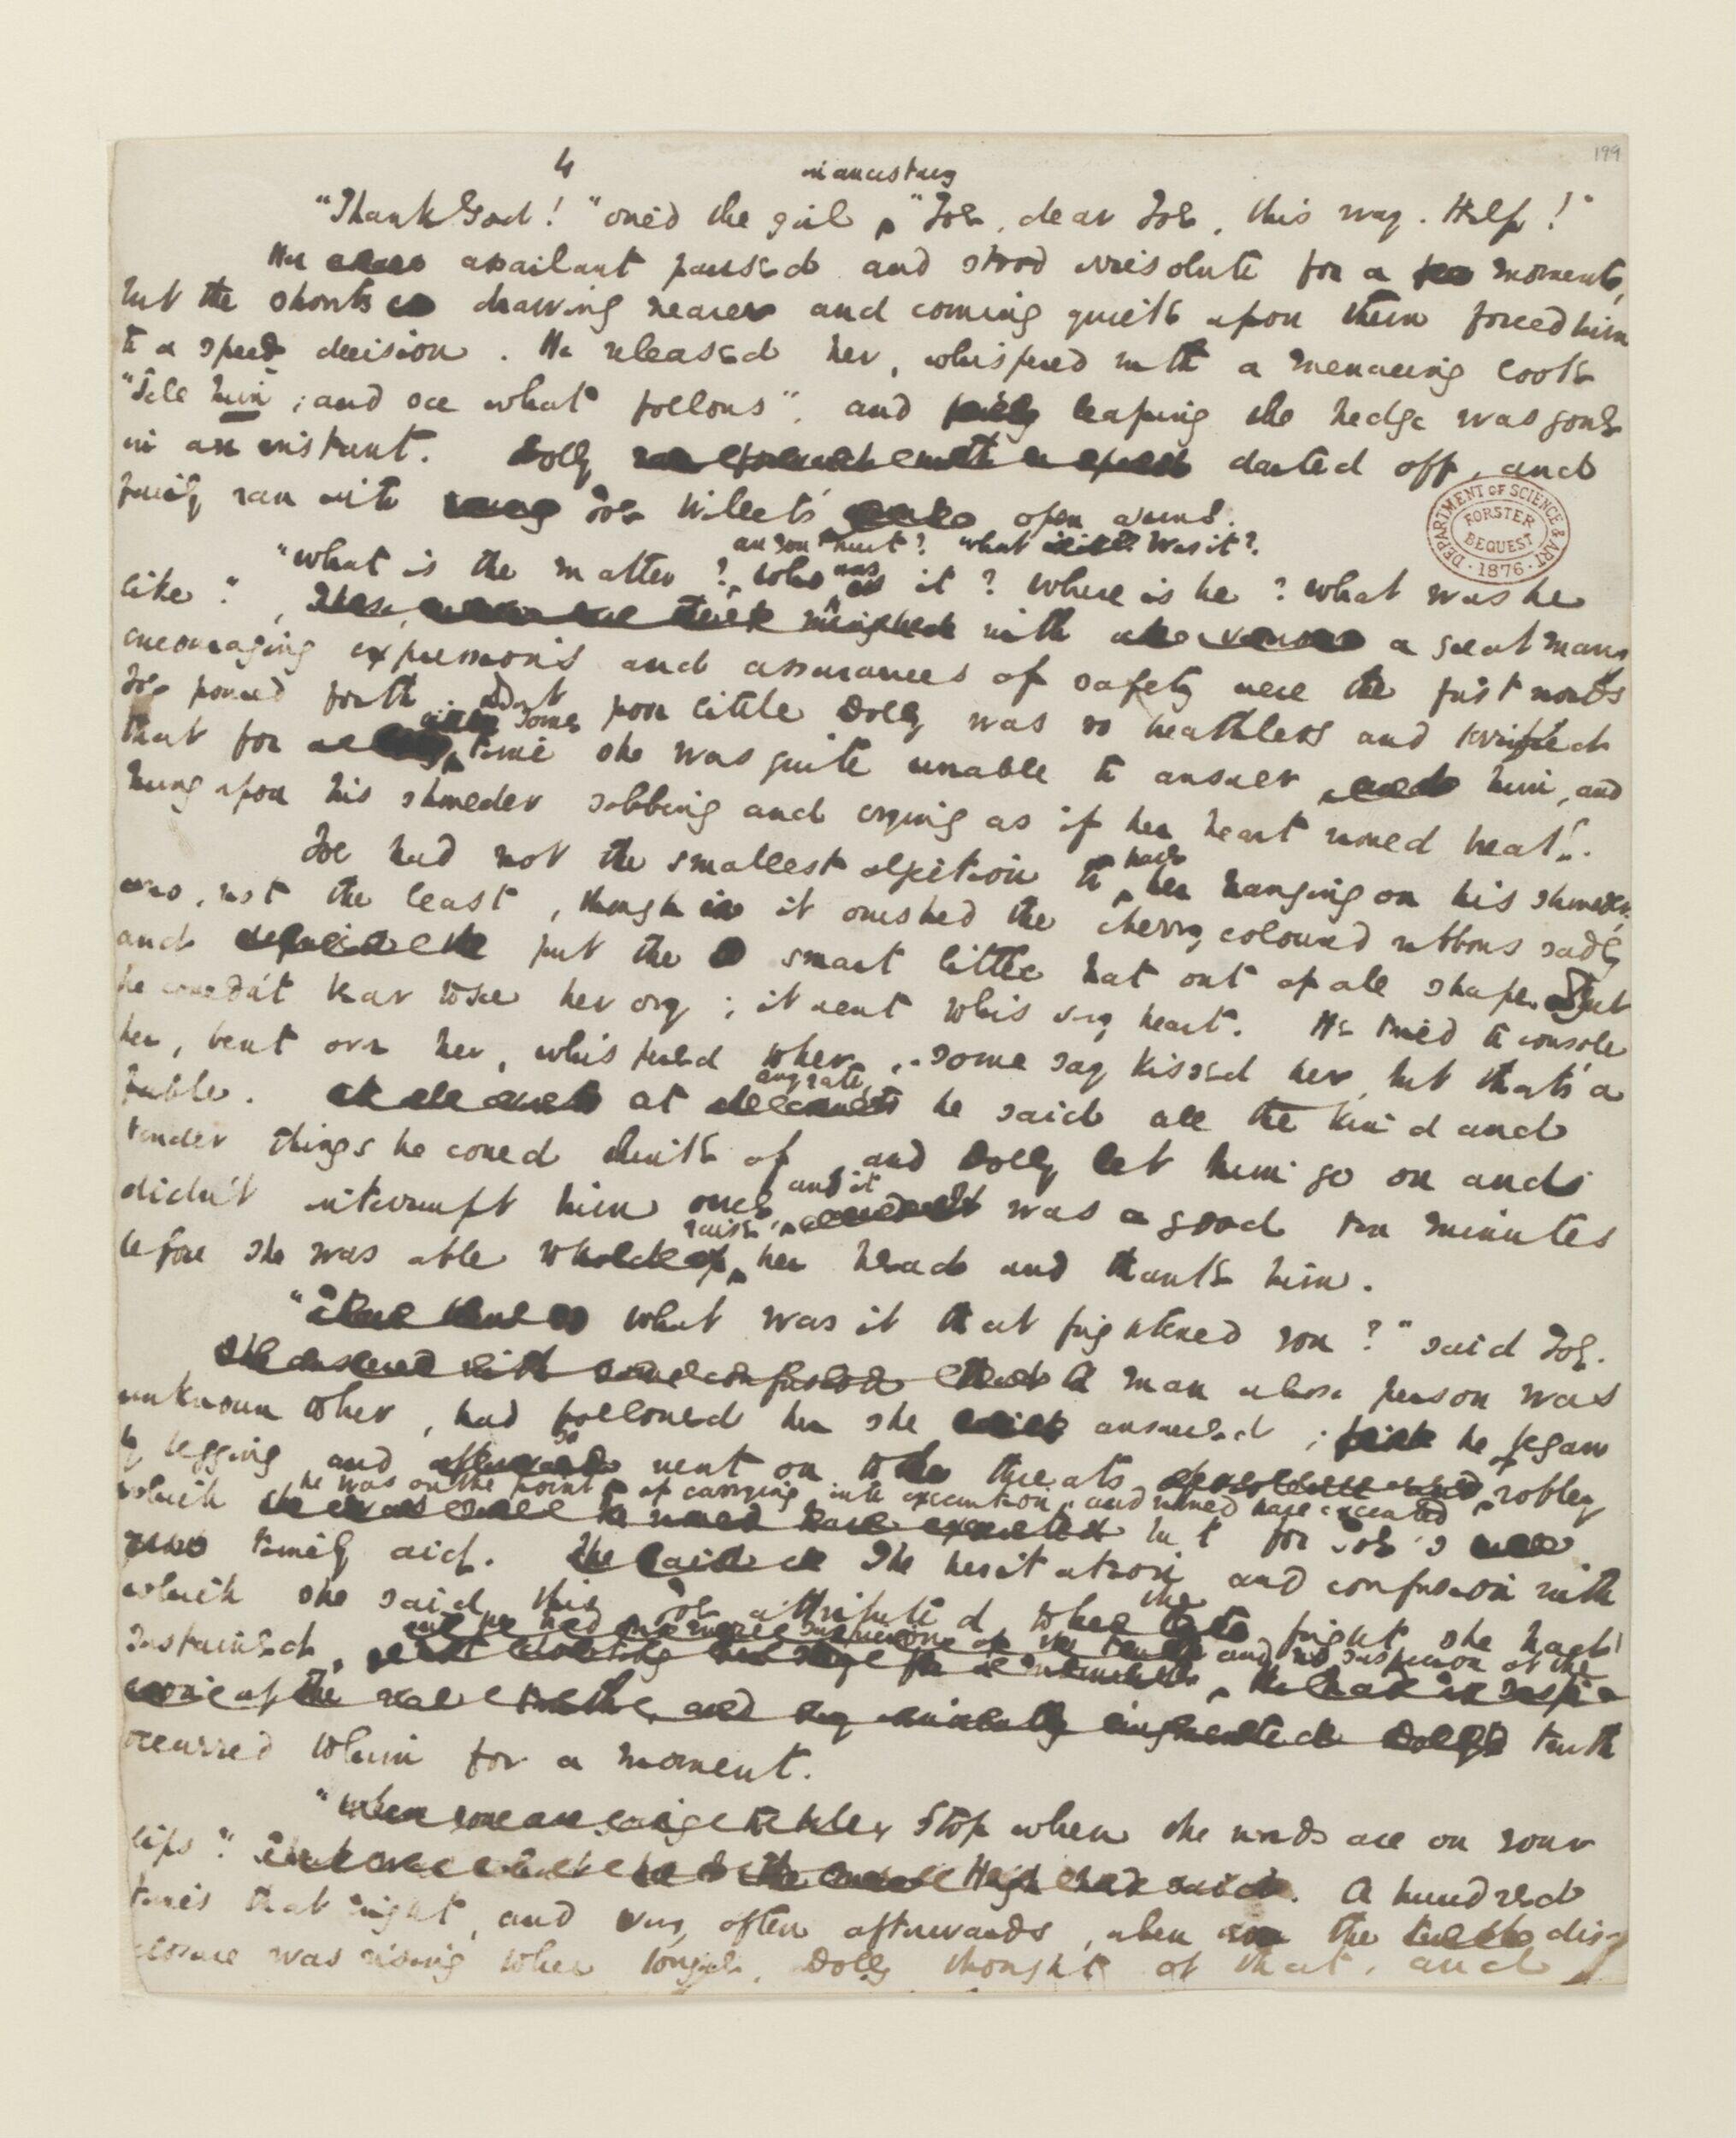 4
199
in an ecstasy
"Thank God!" cried the girl "Joe, dear Joe, this way. Help!"
Her assailant paused and stood irresolute for a moment,
but the shouts drawing nearer and coming quick upon them forced him
to a speedy decision. He released her, whispered with a menacing look
"Tell him; and see what follows", and leaping the hedge was gone
in an instant. Dolly darted off, and
fairly ran into Joe Willet's open arms.
are you hurt? what was it?
"What is the matter? Who was it? Where is he? What was he
like?" mingled with a great many
encouraging expressions and assurances of safety were the first words
Joe poured forth. But poor little Dolly was so breathless and terrified
some
that for time she was quite unable to answer him, and
hung upon his shoulder sobbing and crying as if her heart would break.
have
Joe had not the smallest objection to her hanging on his shoulder,
no, not the least, though it crushed the cherry coloured ribbons sadly
and put the smart little hat out of all shape. But
he couldn't bear to see her cry; it went to his very heart. He tried to console
her, bent over her, whispered to her, some say kissed her, but that's a
any rate
fable. at he said all the kind and
tender things he could think of and Dolly let him go on and
and it
didn't interrupt him once, was a good ten minutes
raise
before she was able to her head and thank him.
" What was it that frightened you?" said Joe.
A man whose person was
unknown to her, had followed her she answered; he began
so
by begging and went on to threats robbery
he was on the point of carrying into execution, and would have executed
which but for Joe's
timely aid. The hesitation and confusion with
the
which she said this, Joe attributed to fright she had
and no suspicion of the
sustained,
truth
occurred to him for a moment.
" Stop when the words are on your
lips." A hundred
times that night, and very often afterwards, when the dis-
closure was rising to her tongue, Dolly thought of that, and
DEPARTMENT OF SCIENCE & ART
FORSTER
BEQUEST
1876